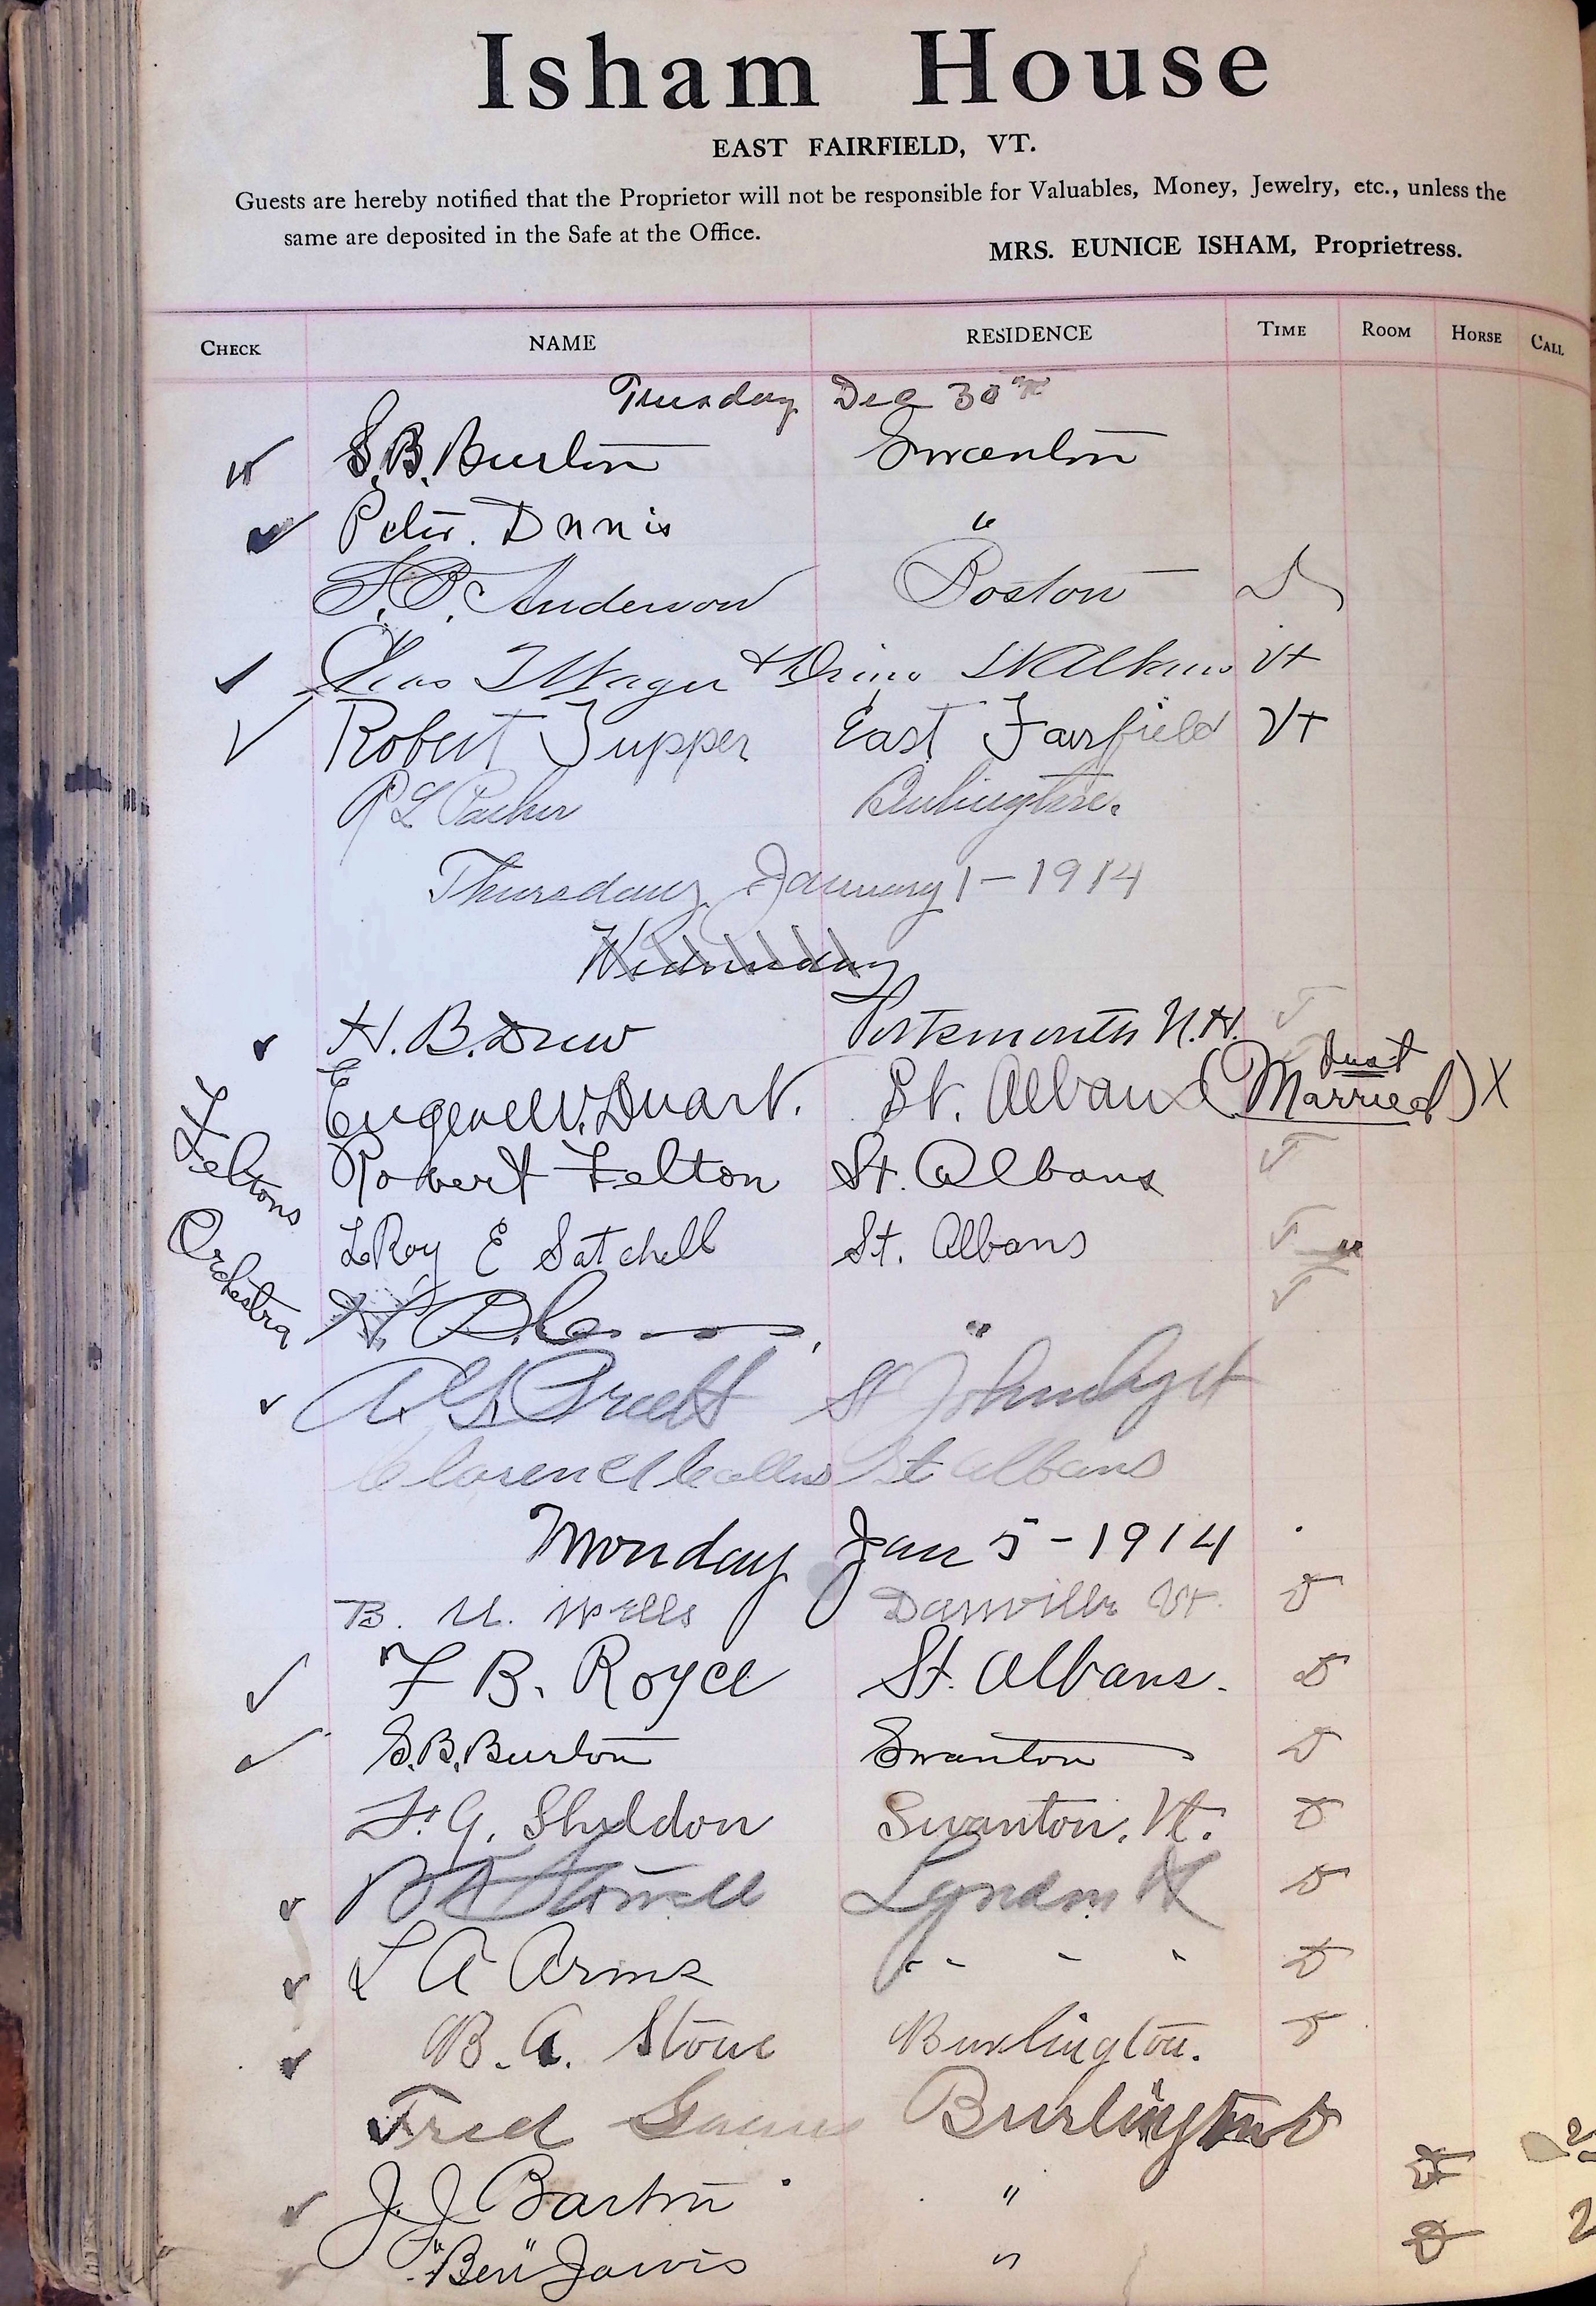 Isham House
EAST FAIRFIELD, VT.
Guests are hereby notified that the Proprietor will not be responsible for Valuables, Money, Jewelry, etc., unless the
same are deposited in the Safe at the Office.
MRS. EUNICE ISHAM, Proprietress.
CHECK NAME RESIDENCE TIME ROOM HORSE CALL
Tuesday Dec 30th
S.B. Burton Swanton
Peter. Dnnis "
Anderson Boston D
Chas Wager St Albans Vt
Robert Tupper East Fairfield Vt
Burlington.
Thursday January 1 - 1914
Wednesday
H. B. Drew Portsmouth N.H.
Eugene W. Duart. St. Albans (Just Married) X
Robert Felton St. Albans
LeRoy E Satchell St. Albans
Feltons Orchestra
"
St Johnsbury Vt
Clarence Collins St Albans
Monday Jan 5 - 1914
B. U. Wells Danville Vt. D
F B. Royce St. Albans. D
S.B. Burton Swanton D
F. G. Sheldon Swanton, Vt. D
Stowell Lyndon Vt D
L A Arms " " " D
B. A. Stone Burlington. D
Fred Burlington D
J. J. Barton "
"Ben" Jarvis "